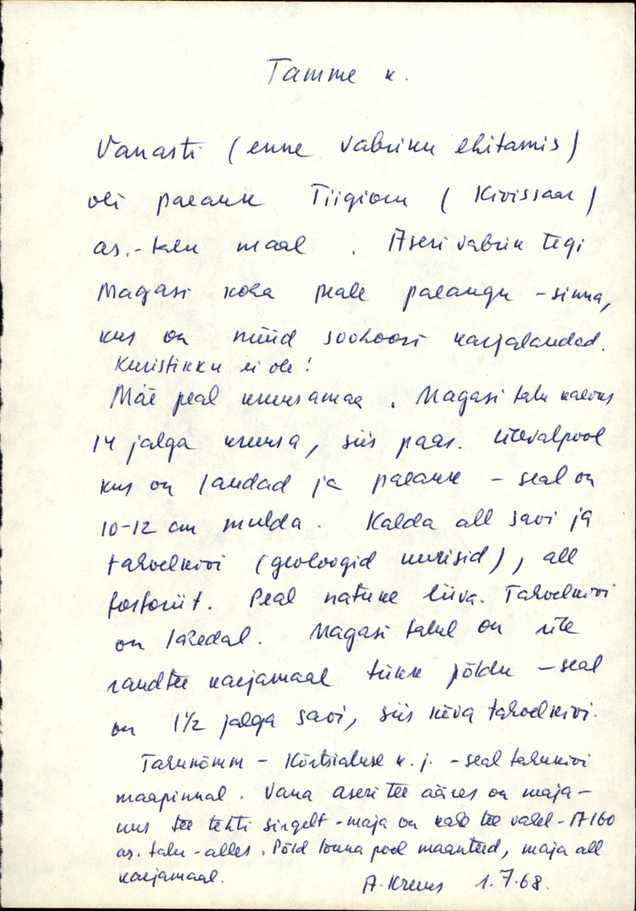 Tamme k.
Vanasti (enne vabriku ehitamis)
oli paeauk Tiigioru (Kivissaar)
as.-talu maal. Aseri vabrik tegi
Magasi koha peale paeaugu - sinna,
kus on nüüd sovhoosi karjalaudad.
Kuristikku ei ole!
Mäe peal kruusamaa. Magasi talu kaevus
14 jalga kruusa, siis paas. Ülevalpool
kus on laudad ja paeauk - seal on
10-12 cm mulda. Kalda all savi ja
tahvelkivi (geoloogid uurisid), all
fosforiit. Peal natuke liiva. Tahvelkivi
on laredal. Magasi talul on üle
raudtee karjamaal tükk põldu - seal
on 1 1/2 jalga savi, siis kõva tahvelkivi.
Tahunõmm - Kõrtsialuse k. j. - seal tahukivi
maapinnal. Vana aseri tee ääres on maja-
tee tehti sirgelt - maja on kahe tee vahel - A 160
as. talu - alles. Põld lõuna pool maanteed, maja all
karjamaal.
A. Kruus 1.7.68.